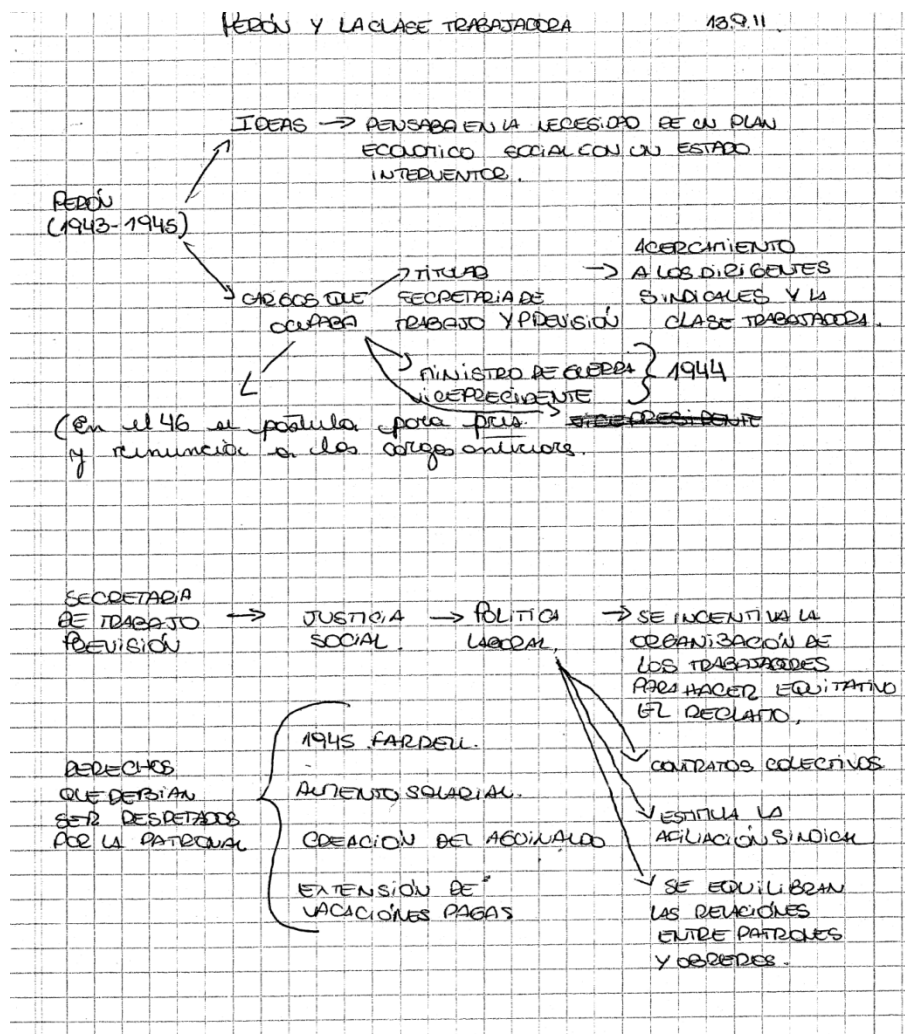 PERÓN Y LA CLASE TRABAJADORA 13.9.11
IDEAS → PENSABA EN LA NECESIDAD DE UN PLAN
ECONOMICO SOCIAL CON UN ESTADO
INTERVENTOR.
PERÓN
(1943-1945)
CARGOS QUE
OCUPABA
TITULAR
SECRETARIA DE
TRABAJO Y PREVISIÓN
→ ACERCAMIENTO
A LOS DIRIGENTES
SINDICALES Y LA
CLASE TRABAJADORA.
MINISTRO DE GUERRA
VICEPRECIDENTE
} 1944
VICEPRESIDENTE
(En el 46 se postula para pres.
y renunció a los cargos anteriores.
SECRETARIA
DE TRABAJO
PREVISIÓN
→ JUSTICIA
SOCIAL.
→ POLITICA
LABORAL.
→ SE INCENTIVA LA
ORGANIZACIÓN DE
LOS TRABAJADORES
PARA HACER EQUITATIVO
EL RECLAMO.
CONTRATOS COLECTIVOS
ESTITULA LA
AFILIACIÓN SINDICAL
SE EQUILIBRAN
LAS RELACIÓNES
ENTRE PATRONES
Y OBREROS.
DERECHOS
QUE DEBIAN
SER RESPETADOS
POR LA PATRONAL
1945 FARRELL.
AUMENTO SALARIAL.
CREACIÓN DEL AGUINALDO
EXTENSIÓN DE
VACACIÓNES PAGAS